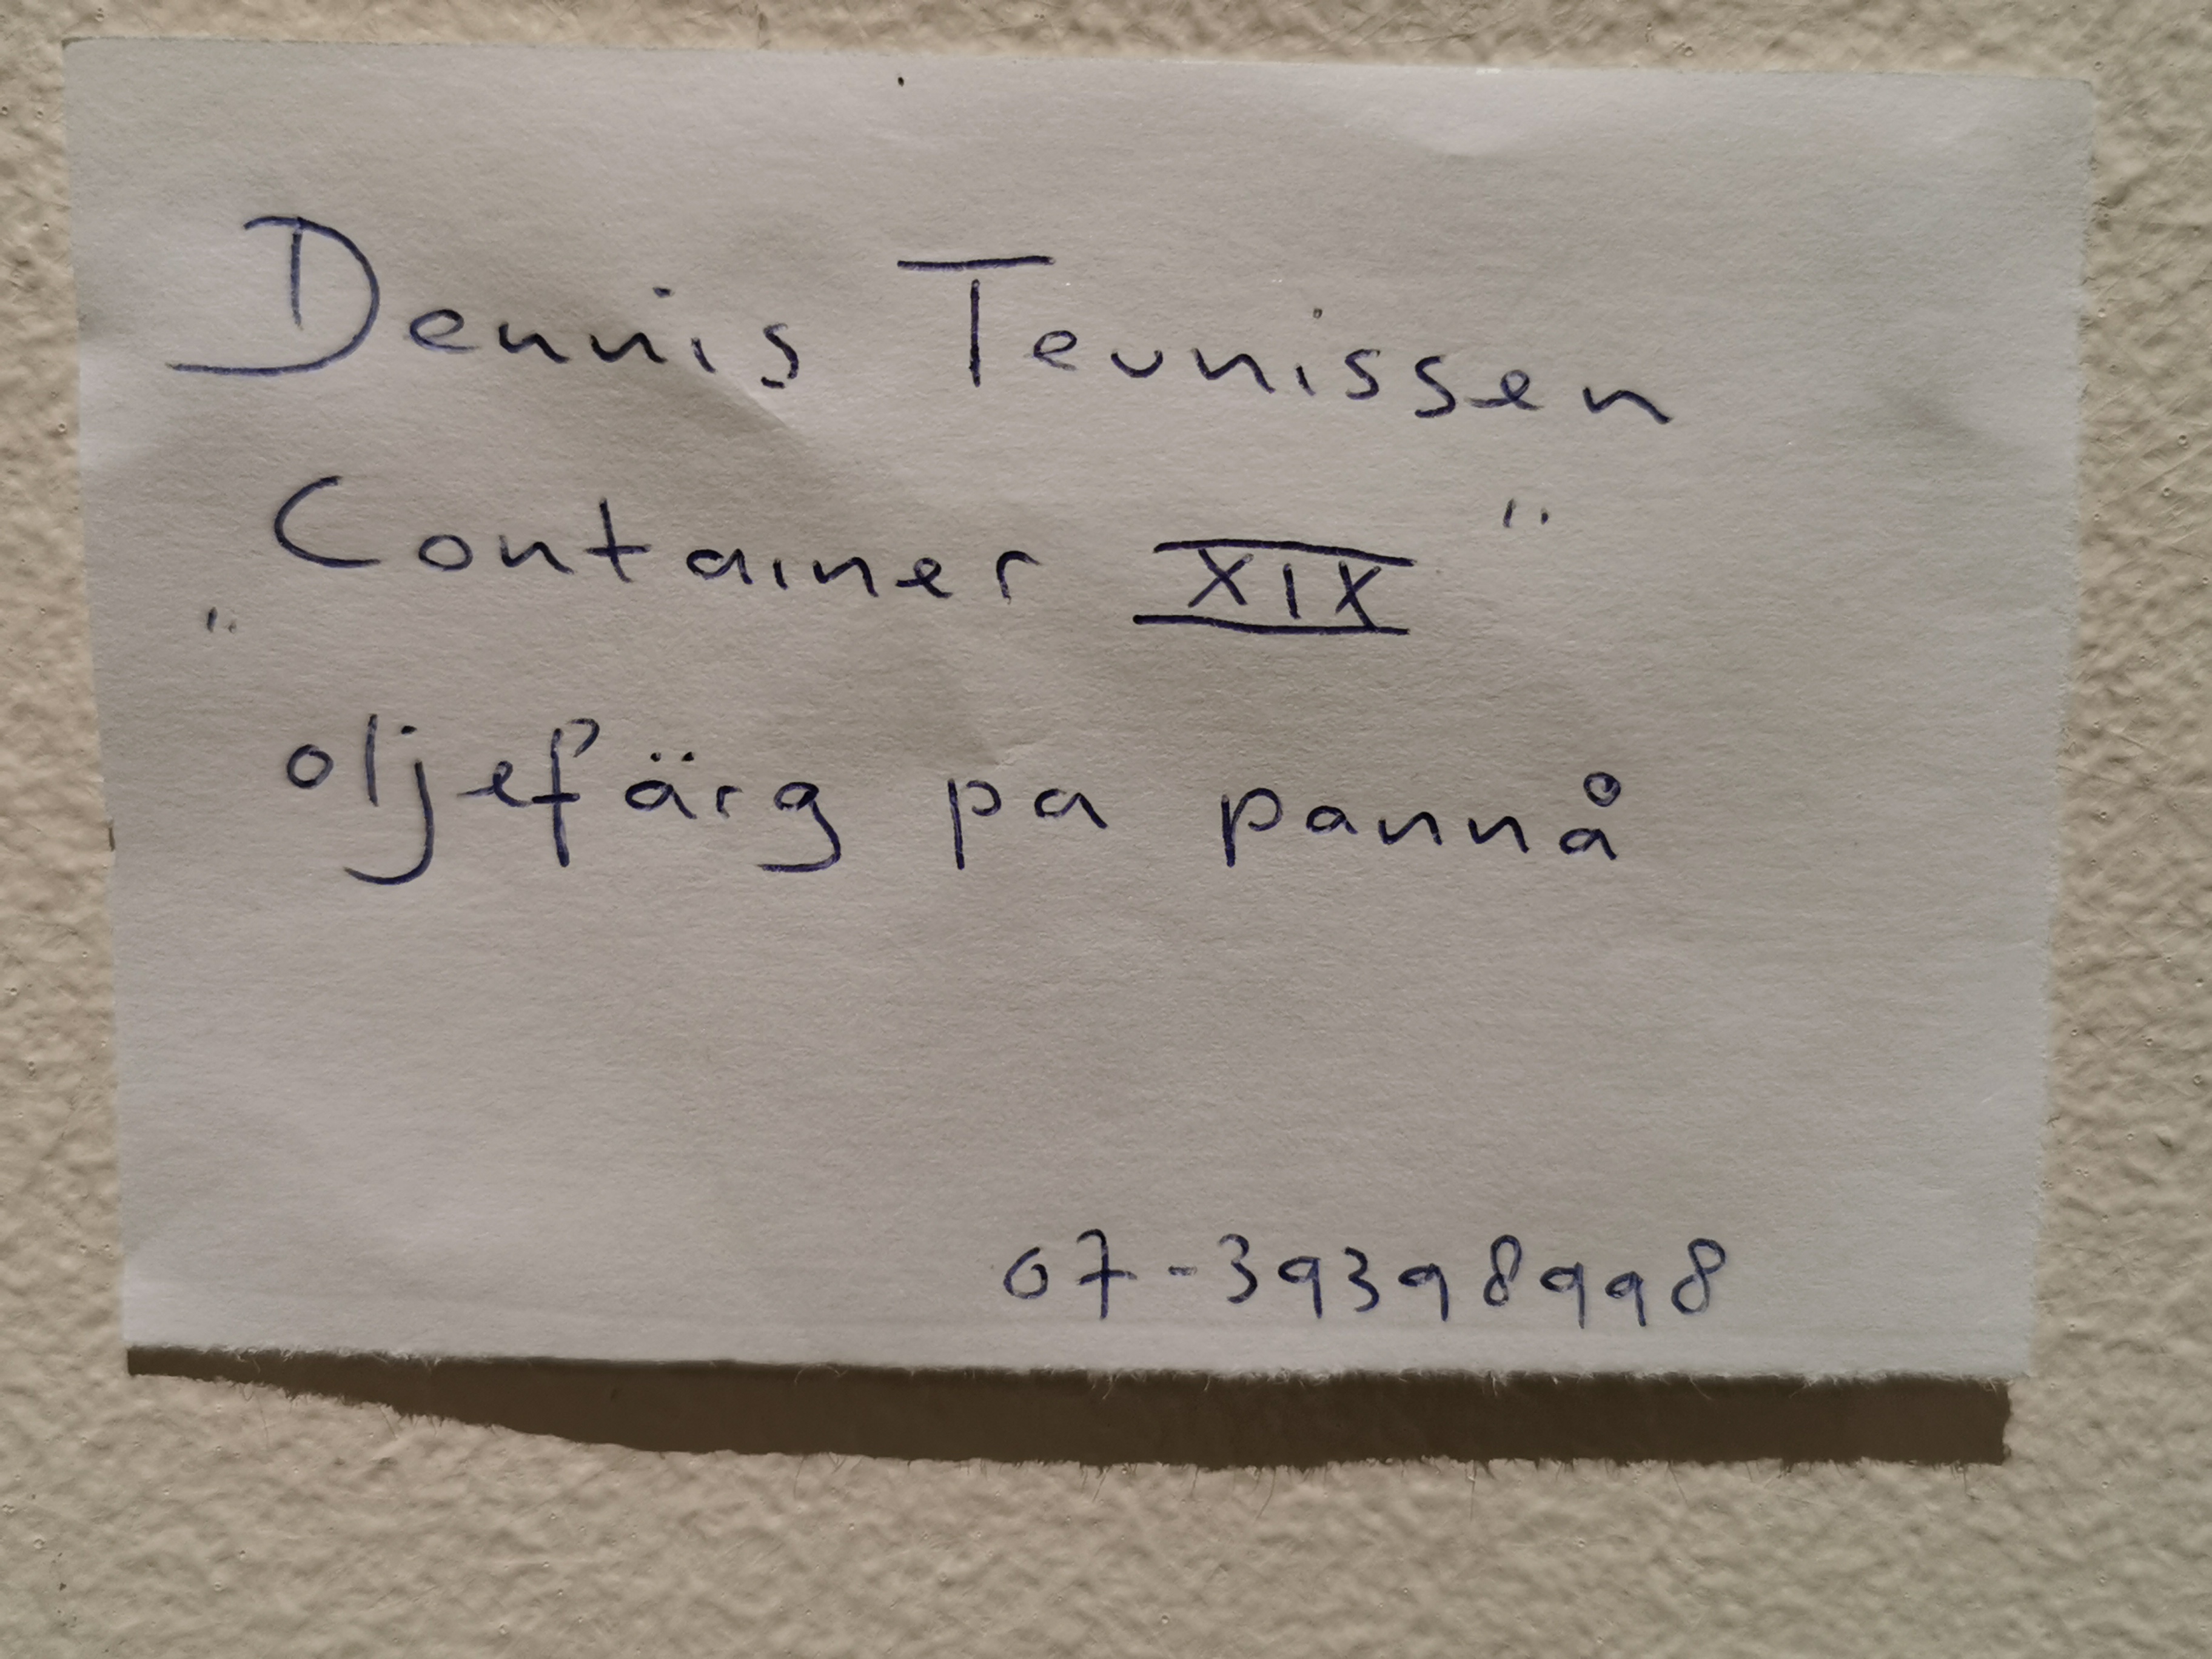 Dennis Teunissen
"Container XIX"
oljefärg pa pannå
07-39398998